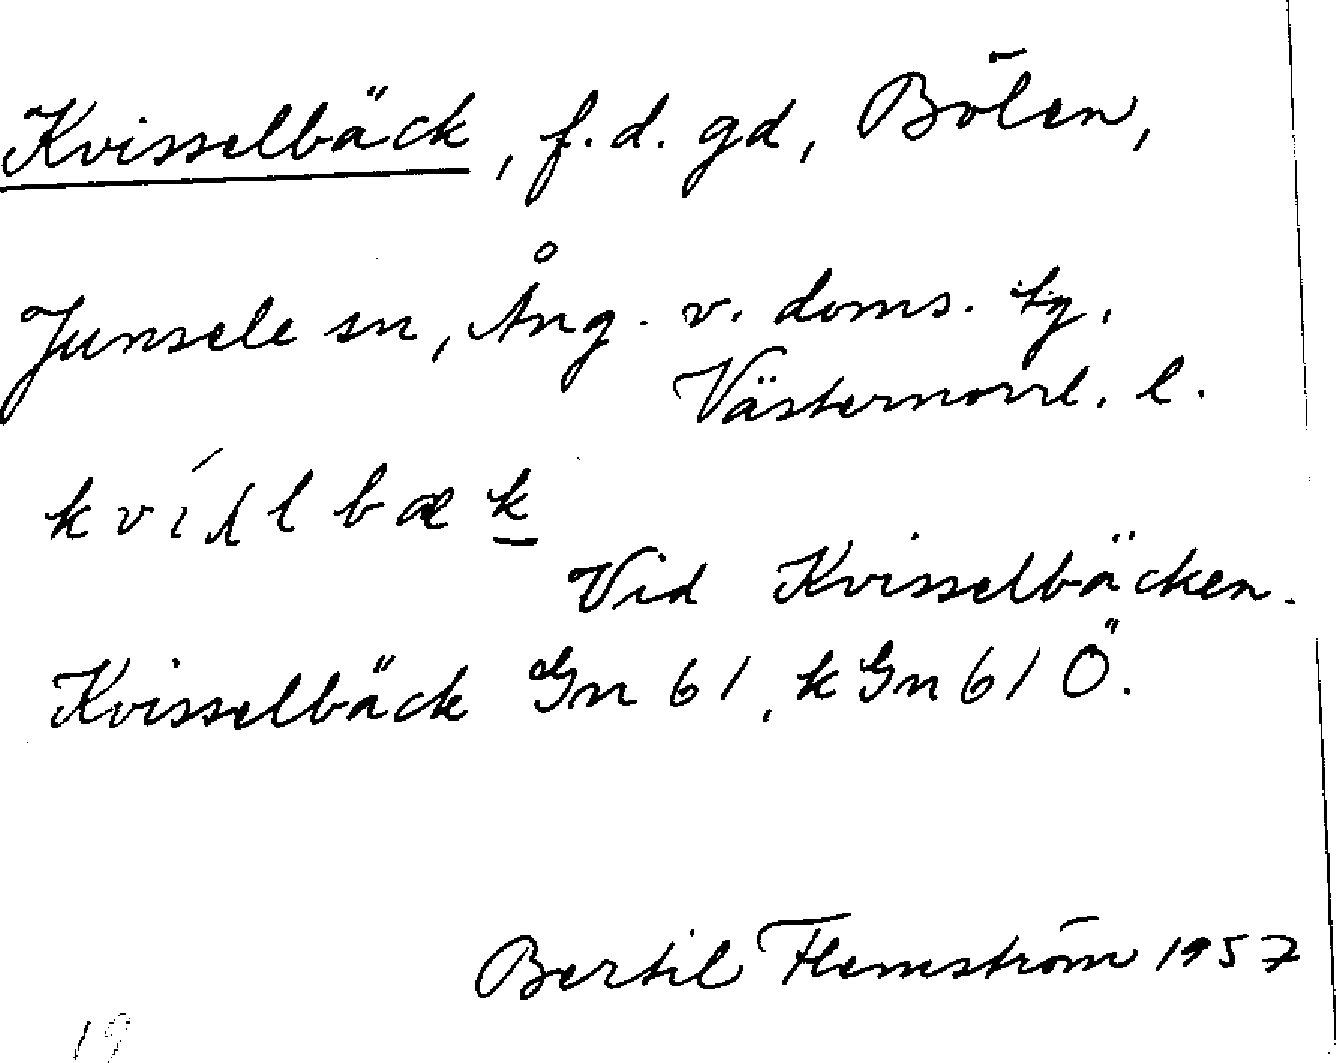 Kvisselbäck, f.d. gd, Bölen,
Junsele sn, Ång. v. doms. tg.
Västernorrl. l.
Vid Kvisselbäcken.
Kvisselbäck Gn 61, kGn 61 Ö.
Bertil Flemström 1957
19